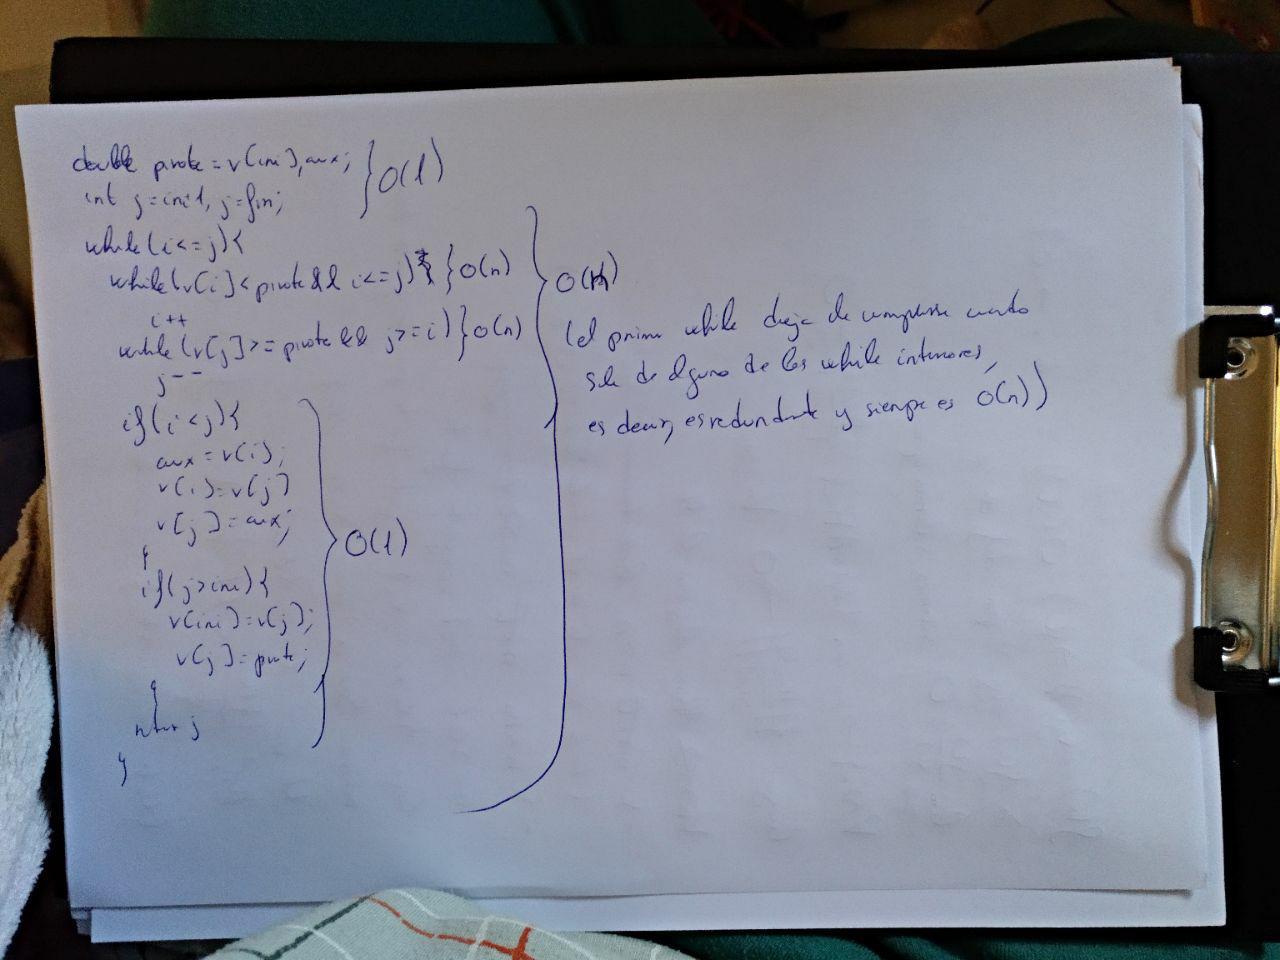 double pivote = v[ini], aux; } O(1)
int j=ini+1, j=fin;
while(i<=j){
while(v[i]<pivote && i<=j) } O(n)
i++
while(v[j]>=pivote && j>=i) } O(n)
j--
if(i<j){
aux = v[i];
v[i]=v[j]
v[j]=aux;
}
if(j>ini){
v[ini]=v[j];
v[j]=pivote;
}
return j
}
} O(1)
} O(n)
(el primer while deja de cumplirse cuando
sale de alguno de los while interiores,
es decir, es redundante y siempre es O(n))